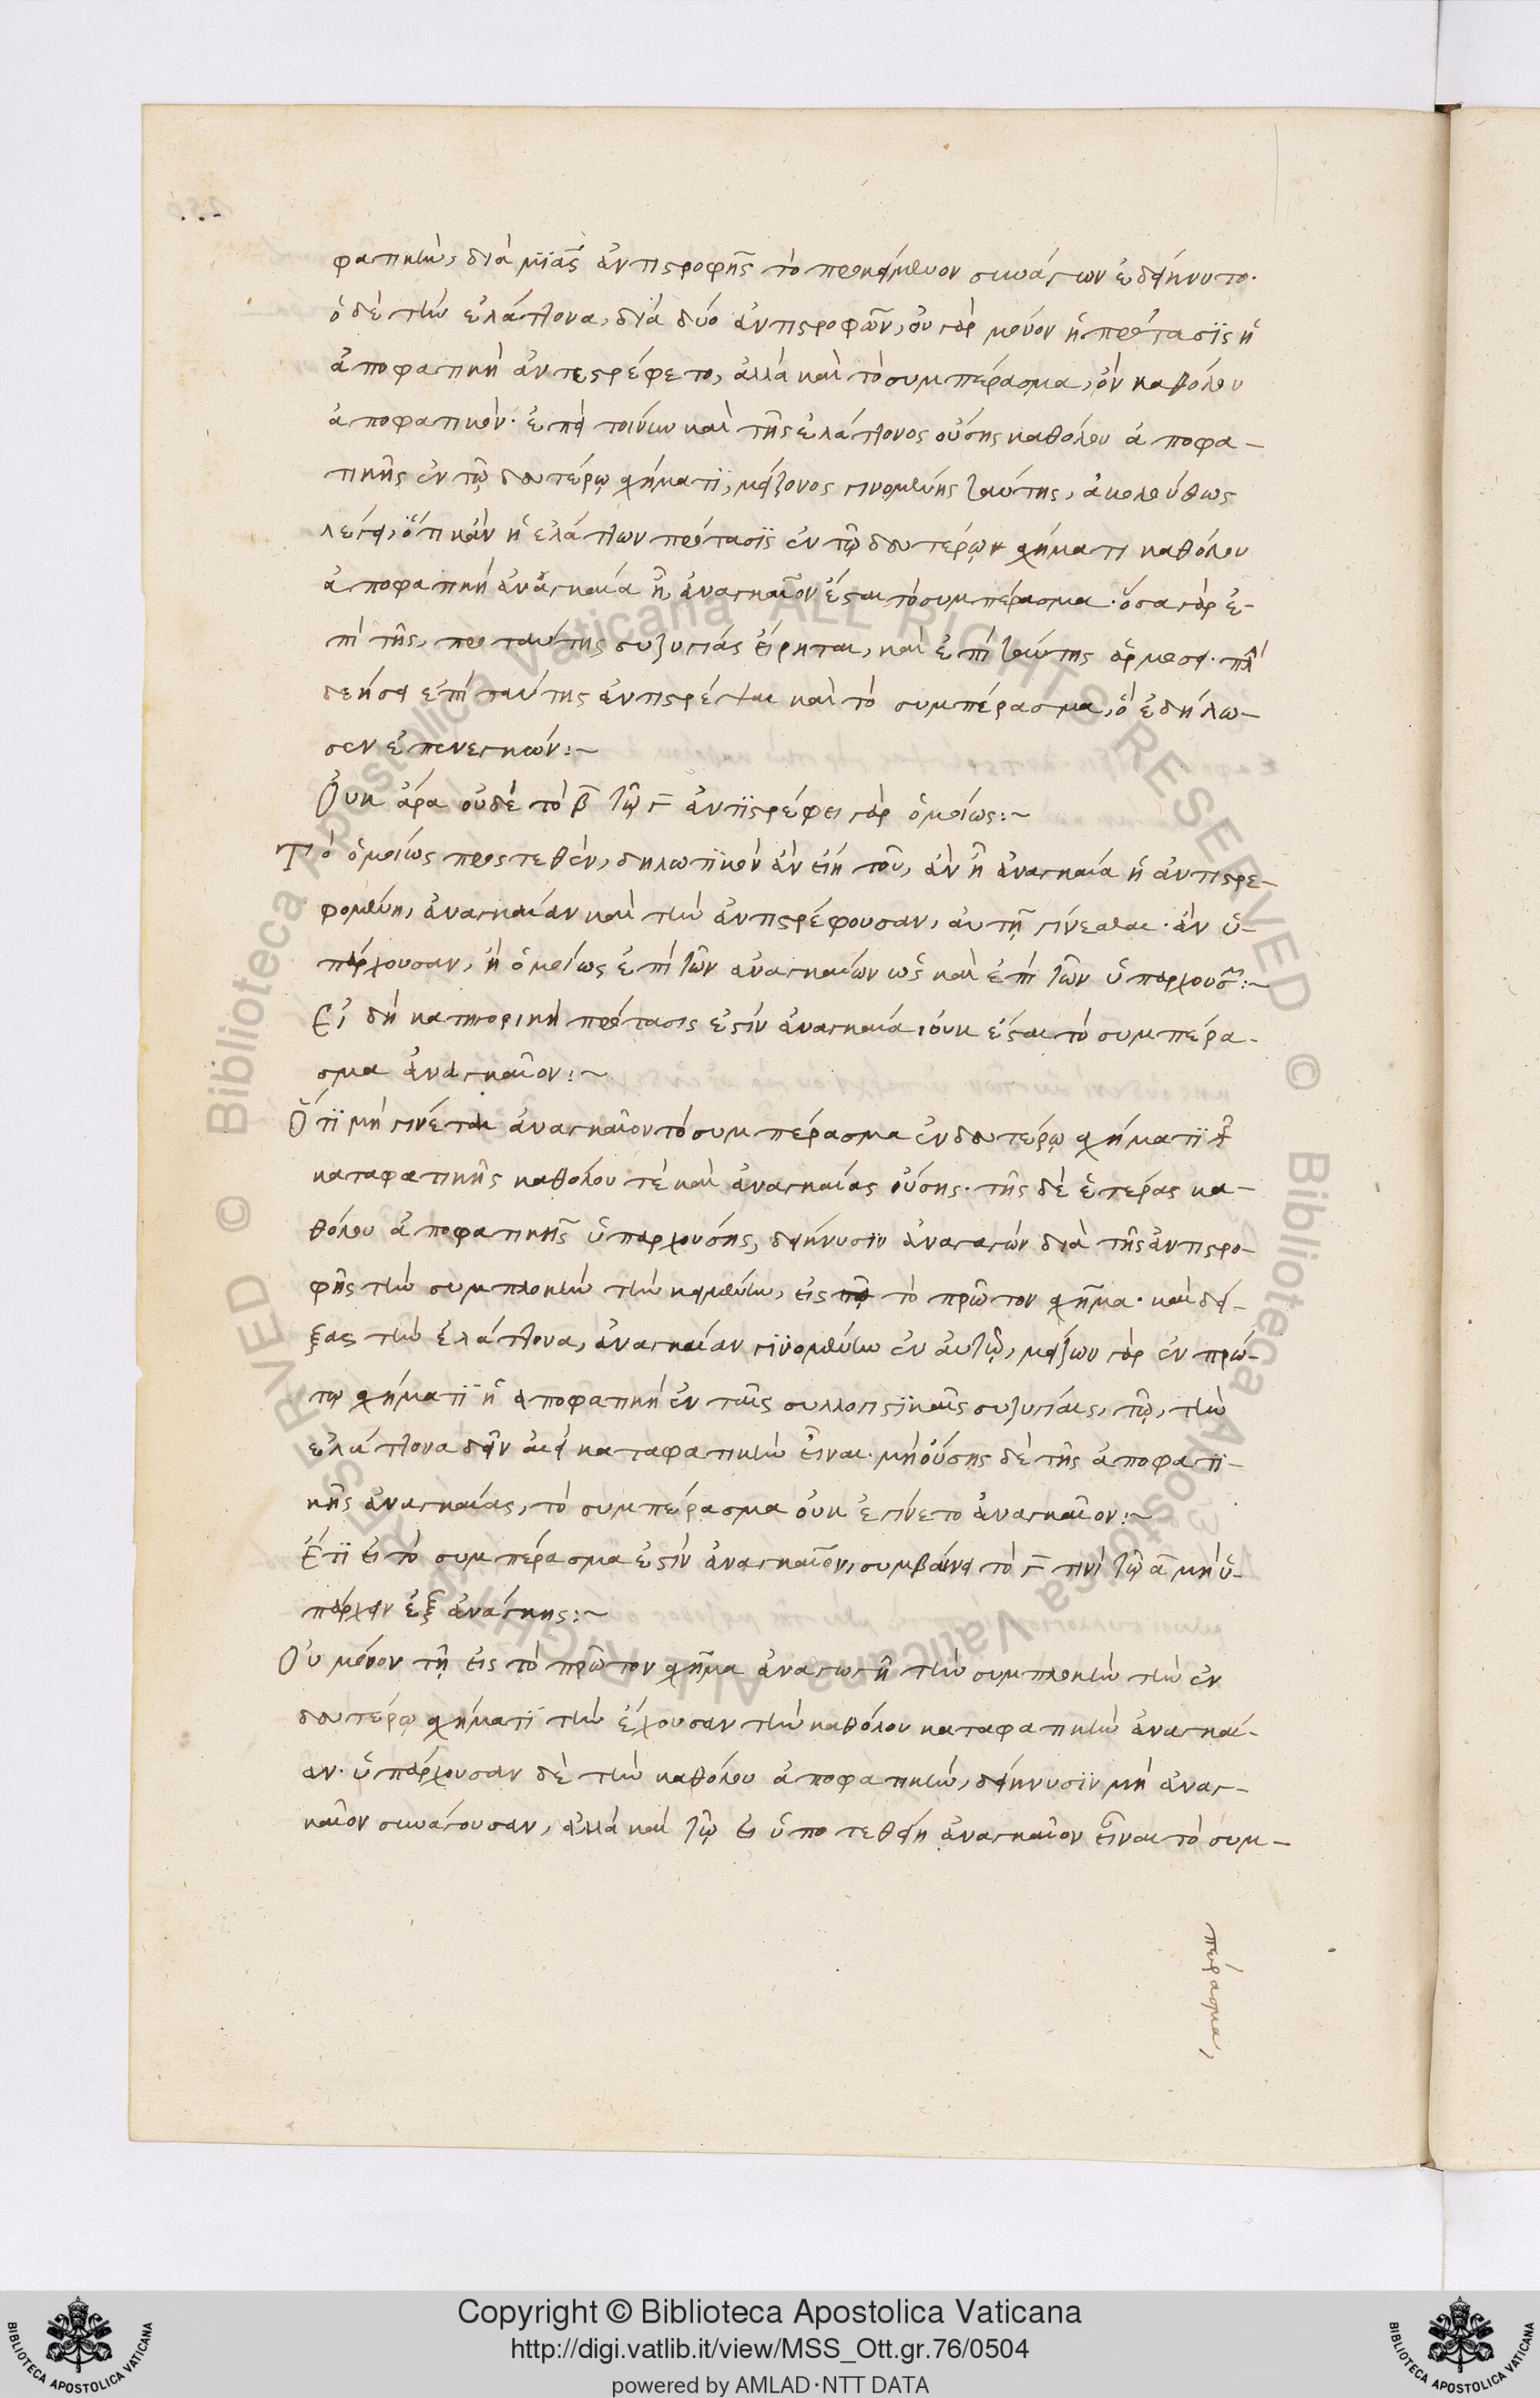 φατικὴν, διὰ μϊᾶς ἀντιστροφῆς τὸ προκείμενον συνάγων ἐδείκνυτο·
ὁ δὲ τὴν ἐλάττονα, διὰ δύο ἀντιστροφῶν, οὐ γὰρ μόνον ἡ πρότασϊς ἡ
ἀποφατικὴ ἀντεστρέφετο, ἀλλὰ καὶ τὸ συμπέρασμα, ὂν καθόλου
ἀποφατικόν· ἐπεὶ τοίνυν καὶ τῆς ἐλάττονος οὔσης καθόλου ἀποφα-
τικῆς ἐν τῷ δευτέρῳ σχήματϊ, μείζονος γινομένης ταύτης, ἀκολούθως
λέγει, ὅτι κἂν ἡ ἐλάττων πρότασϊς ἐν τῷ δευτέρῳ σχήματι καθόλου
ἀποφατικὴ ἀναγκαία ᾖ, ἀναγκαῖον ἔσται τὸ συμπέρασμα· ὅσα γὰρ ἐ-
πὶ τῆς, προ ταύτης συζυγίας εἴρηται, καὶ ἐπὶ ταύτης ἁρμόσει· πλὴν
δεήσει ἐπὶ ταύτης ἀντιστρέψαι καὶ τὸ συμπέρασμα, ὃ ἐδήλω-
σεν ἐπενεγκών:~
Οὐκ ἄρα οὐδὲ τὸ β τῷ γ ἀντϊστρέφει γὰρ ὁμοίως:~
Τὸ ὁμοίως προστεθὲν, δηλωτϊκὸν ἂν εἴη τοῦ, ἂν ᾖ ἀναγκαία ἡ ἀντιστρε-
φομένη, ἀναγκαίαν καὶ τὴν ἀντιστρέφουσαν, αὐτῇ γίνεσθαι· ἂν ὑ-
πάρχουσαν, ἢ ὁμοίως ἐπὶ τῶν ἀναγκαίων ὡς καὶ ἐπὶ τῶν ὑπαρχουσῶν:~
Εἰ δὴ κατηγορικὴ πρότασις ἐστὶν ἀναγκαία, οὐκ ἔσται τὸ συμπέρα-
σμα ἀναγκαῖον:~
Ὅτϊ μὴ γίνεται ἀναγκαῖον τὸ συμπέρασμα ἐν δευτέρῳ σχήματϊ τῆς
καταφατικῆς καθόλου τὲ καὶ ἀναγκαίας οὔσης· τῆς δὲ ἑτέρας κα-
θόλου ἀποφατικῆς ὑπαρχούσης, δείκνυσιν ἀναγαγὼν διὰ τῆς ἀντιστρο-
φῆς τὴν συμπλοκὴν τὴν κειμένην, εἰς τὸ πρῶτον σχῆμα· καὶ δεί-
ξας τὴν ἐλάττονα, ἀναγκαίαν γϊνομένην ἐν αὐτῷ, μείζων γὰρ ἐν πρώ-
τῳ σχήματϊ ἡ ἀποφατικὴ ἐν ταῖς συλλογιστϊκαῖς συζυγίαις, τῷ, τὴν
ἐλάττονα δεῖν ἀεὶ καταφατικὴν εἶναι· μὴ οὔσης δὲ τῆς ἀποφατϊ-
κῆς ἀναγκαίας, τὸ συμπέρασμα οὐκ ἐγίνετο ἀναγκαῖον:~
Ἔτϊ εἰ τὸ συμπέρασμα ἐστὶν ἀναγκαῖον, συμβαίνει τὸ γ τινὶ τῷ α μὴ ὑ-
πάρχειν ἐξ ἀνάγκης:~
Οὐ μόνον τῇ εἰς τὸ πρῶτον σχῆμα ἀναγωγῇ τὴν συμπλοκὴν τὴν ἐν
δευτέρῳ σχήματϊ τὴν ἔχουσαν τὴν καθόλου καταφατικὴν ἀναγκαί-
αν· ὑπάρχουσαν δὲ τὴν καθόλου ἀποφατικὴν, δείκνυσϊν μὴ ἀναγ-
καῖον συνάγουσαν, ἀλλὰ καὶ τῷ εἰ ὑποτεθείη ἀναγκαῖον εἶναι τὸ συμ-
πέρασμα,
Copyright © Biblioteca Apostolica Vaticana
http://digi.vatlib.it/view/MSS_Ott.gr.76/0504
powered by AMLAD·NTT DATA